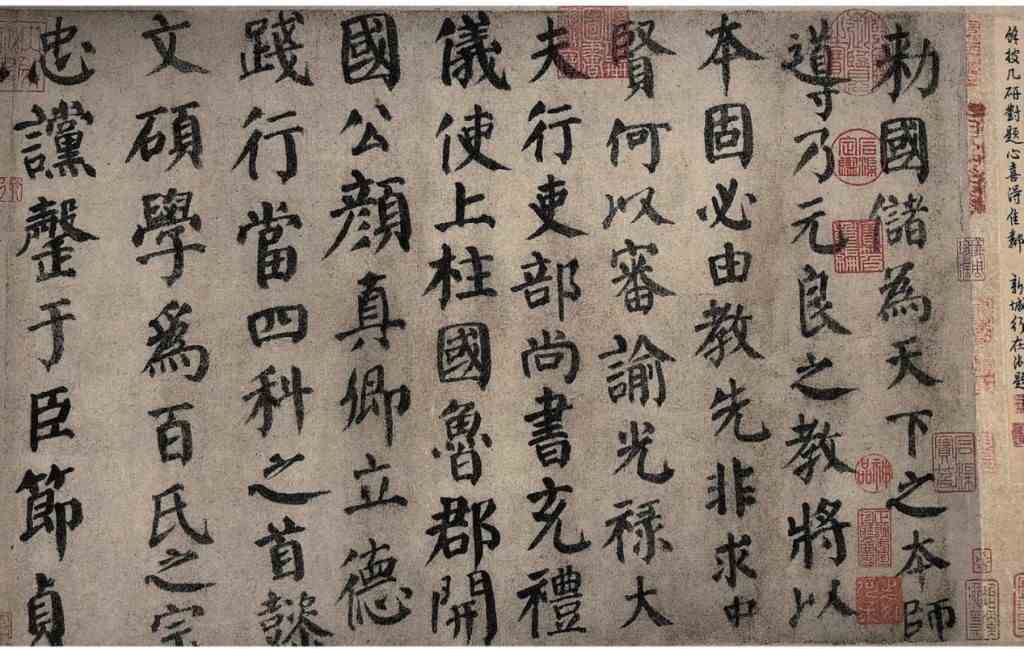 披几研對題心喜得佳鄰 新城行在御題
勅國儲為天下之本師
導乃元良之教將以
本固必由教先非求中
賢何以審諭光祿大
夫行吏部尚書充禮
儀使上柱國魯郡開
國公顏真卿立德
踐行當四科之首懿
文碩學爲百氏之宗
忠讜罄于臣節貞